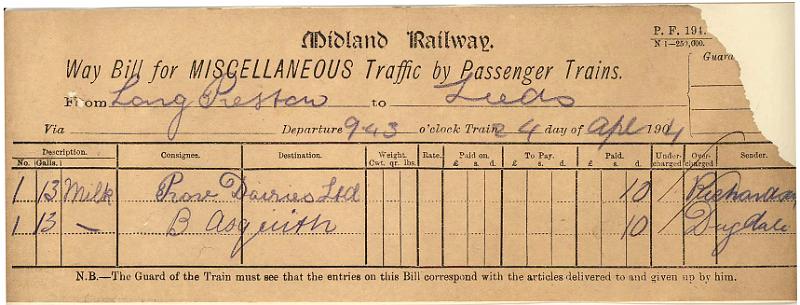 Midland Railway.
P. F. 194.
N 1—250,000.
Way Bill for MISCELLANEOUS Traffic by Passenger Trains.
Guard
From Long Preston to Leeds
Via Departure 9-43 o'clock Train 24 day of Apl 1904
Description. Consignee. Destination. Weight. Rate. Paid on. To Pay. Paid. Under-charged Over-charged Sender.
No. Galls. Cwt. qr. lbs. £ s. d. £ s. d. £ s. d.
1 13 Milk Prov Dairies Ltd 10 Richardson
1 13 — B Asquith 10 Dugdale
N.B.—The Guard of the Train must see that the entries on this Bill correspond with the articles delivered to and given up by him.